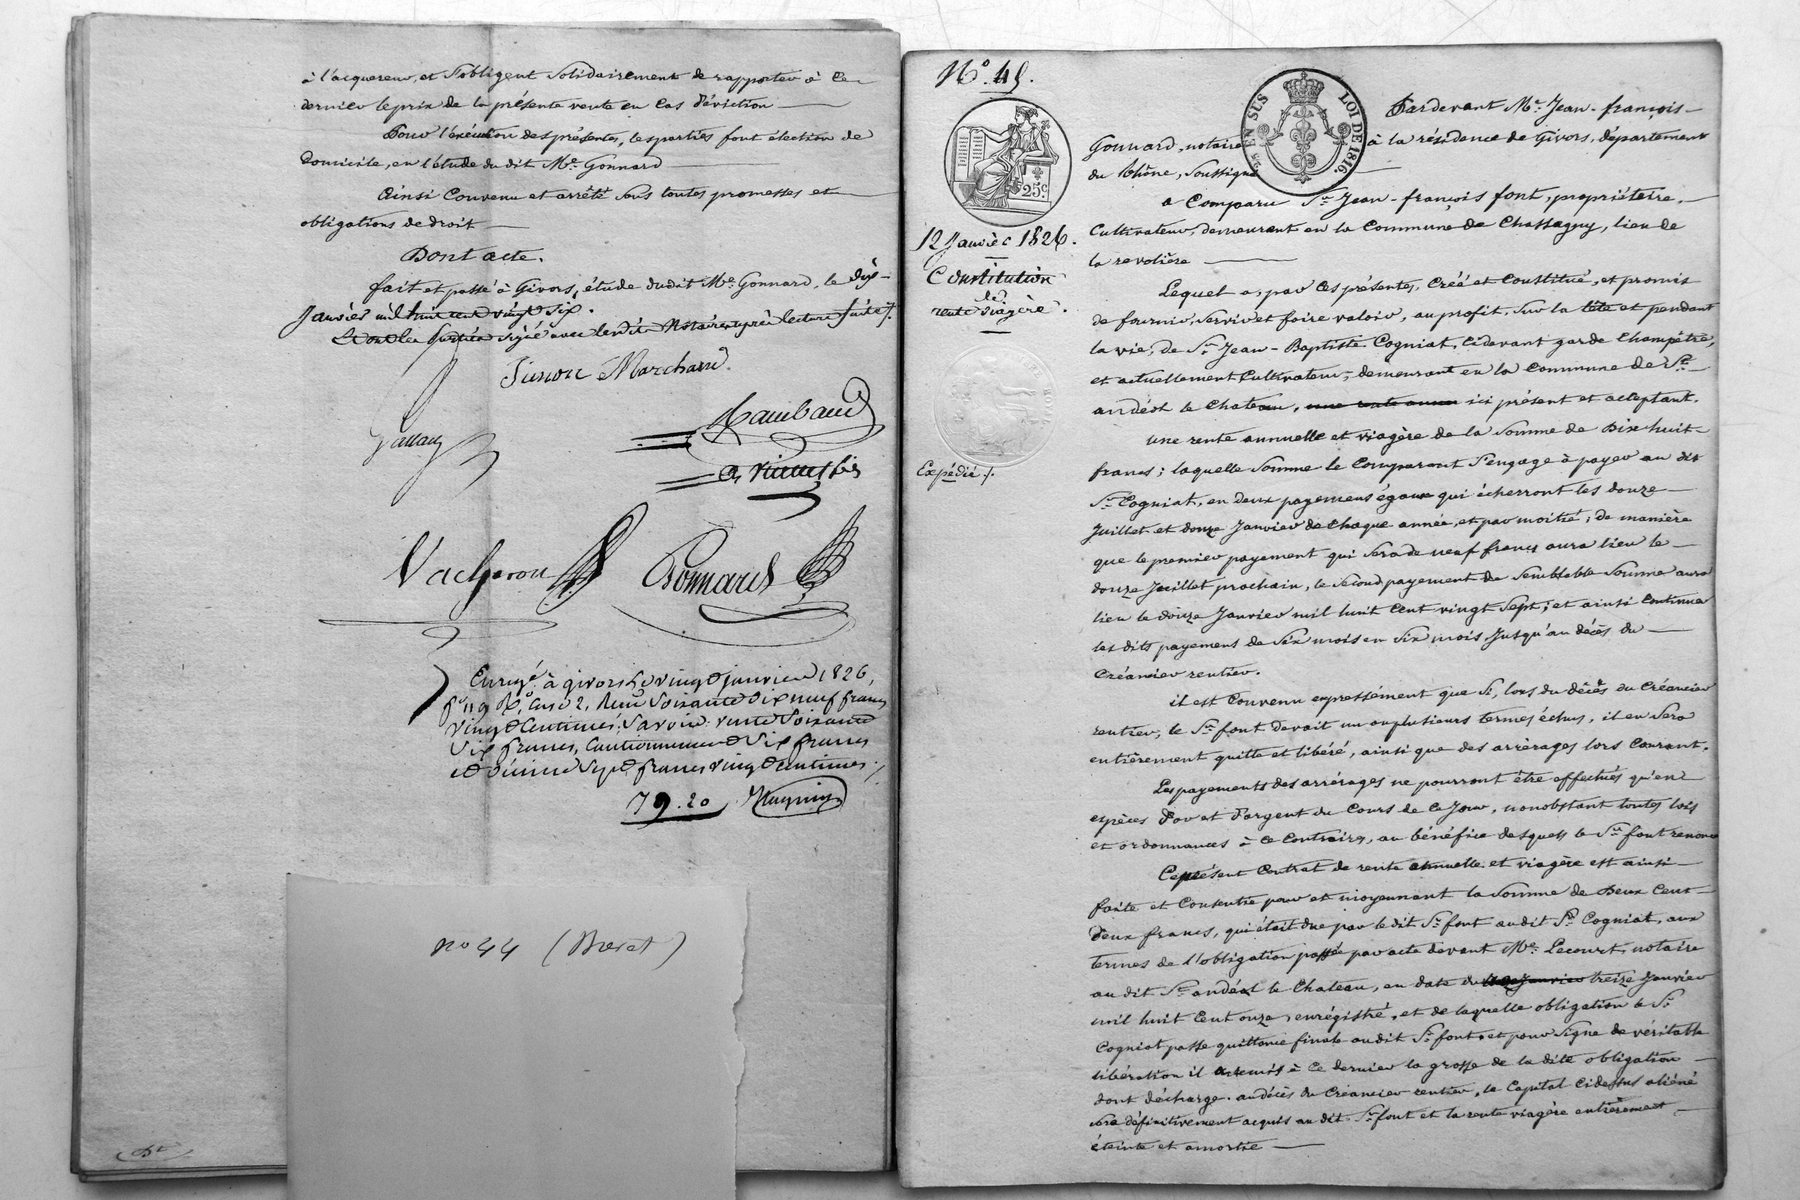 à l'acquereur, et s'obligent solidairement de rapporter à ce
dernier le prix de la présente vente en cas d'éviction
Pour l'exécution des présentes, les parties font élection de
domicile, en l'étude du dit Me. Gonnard
Ainsi convenu et arrêté sous toutes promesses et
obligations de droit
Dont acte.
fait et passé à Givors, étude dudit Me. Gonnard, le dix
Janvier mil huit cent vingt six.
signé avec le dit Notaire après lecture faite
Simon Marchand.
Rambaud
Vacheron
Gonnard
Enregé. à givors le vingt janvier 1826,
fo. 119 Ro, case 2, Reçu soixante dix neuf francs
vingt centimes, savoir: vente soixante
six francs, cautionnement six francs
et dixième sept francs vingt centimes
79.20
no 44 (Brevet)
No. 45.
EN SUS
LOI DE 1816.
25c.
12 Janvier 1826.
Constitution
de
rente viagère.
Expédié
Pardevant Me. Jean-françois
Gonnard, notaire à la résidence de Givors, département
du Rhône, soussigné
a comparu Sr. Jean-françois font, propriétaire,
cultivateur, demeurant en la commune de Chassagny, lieu de
la revolière
Lequel a, par ces présentes, créé et constitué, et promis
de fournir, servir et faire valoir, au profit, sur la tête et pendant
la vie, de Sr. Jean-Baptiste Cogniat, cidevant garde champêtre,
et actuellement cultivateur, demeurant en la commune de St.
andéol le chateau, une rente annu ici présent et acceptant.
une rente annuelle et viagère de la somme de Dix huit
francs; laquelle somme le comparant s'engage à payer au dit
Sr. Cogniat, en deux payemens égaux qui écherront les douze
Juillet et douze Janvier de chaque année, et par moitié; de manière
que le premier payement qui sera de neuf francs aura lieu le
douze Juillet prochain, le second payement de semblable somme aura
lieu le douze Janvier mil huit cent vingt sept; et ainsi continuer
les dits payemens de six mois en six mois jusqu'au décès du
créancier rentier.
il est convenu expressément que si, lors du décès du créancier
rentier, le Sr. font devait un ou plusieurs termes échus, il en sera
entièrement quitte et libéré, ainsi que des arrérages lors courant.
Les payements des arrérages ne pourront être effectués qu'en
espèces d'or et d'argent du cours de ce jour, nonobstant toutes lois
et ordonnances à ce contraires, au bénéfice desquels le Sr. font renonce
Le présent contrat de rente annuelle et viagère est ainsi
faite et consentie pour et moyennant la somme de Deux cent
deux francs, qui était due par le dit Sr. font au dit Sr. Cogniat, aux
termes de l'obligation passée par acte devant Me. Lecourt, notaire
au dit St. andéol le chateau, en date du treize Janvier
mil huit cent onze, enrégistré, et de laquelle obligation le Sr.
Cogniat passe quittance finale au dit Sr. font, et pour signe de véritable
libération il a remis à ce dernier la grosse de la dite obligation
dont décharge. au décès du créancier rentier, le capital cidessus aliéné
sera définitivement acquis au dit Sr. font et la rente viagère entièrement
éteinte et amortie